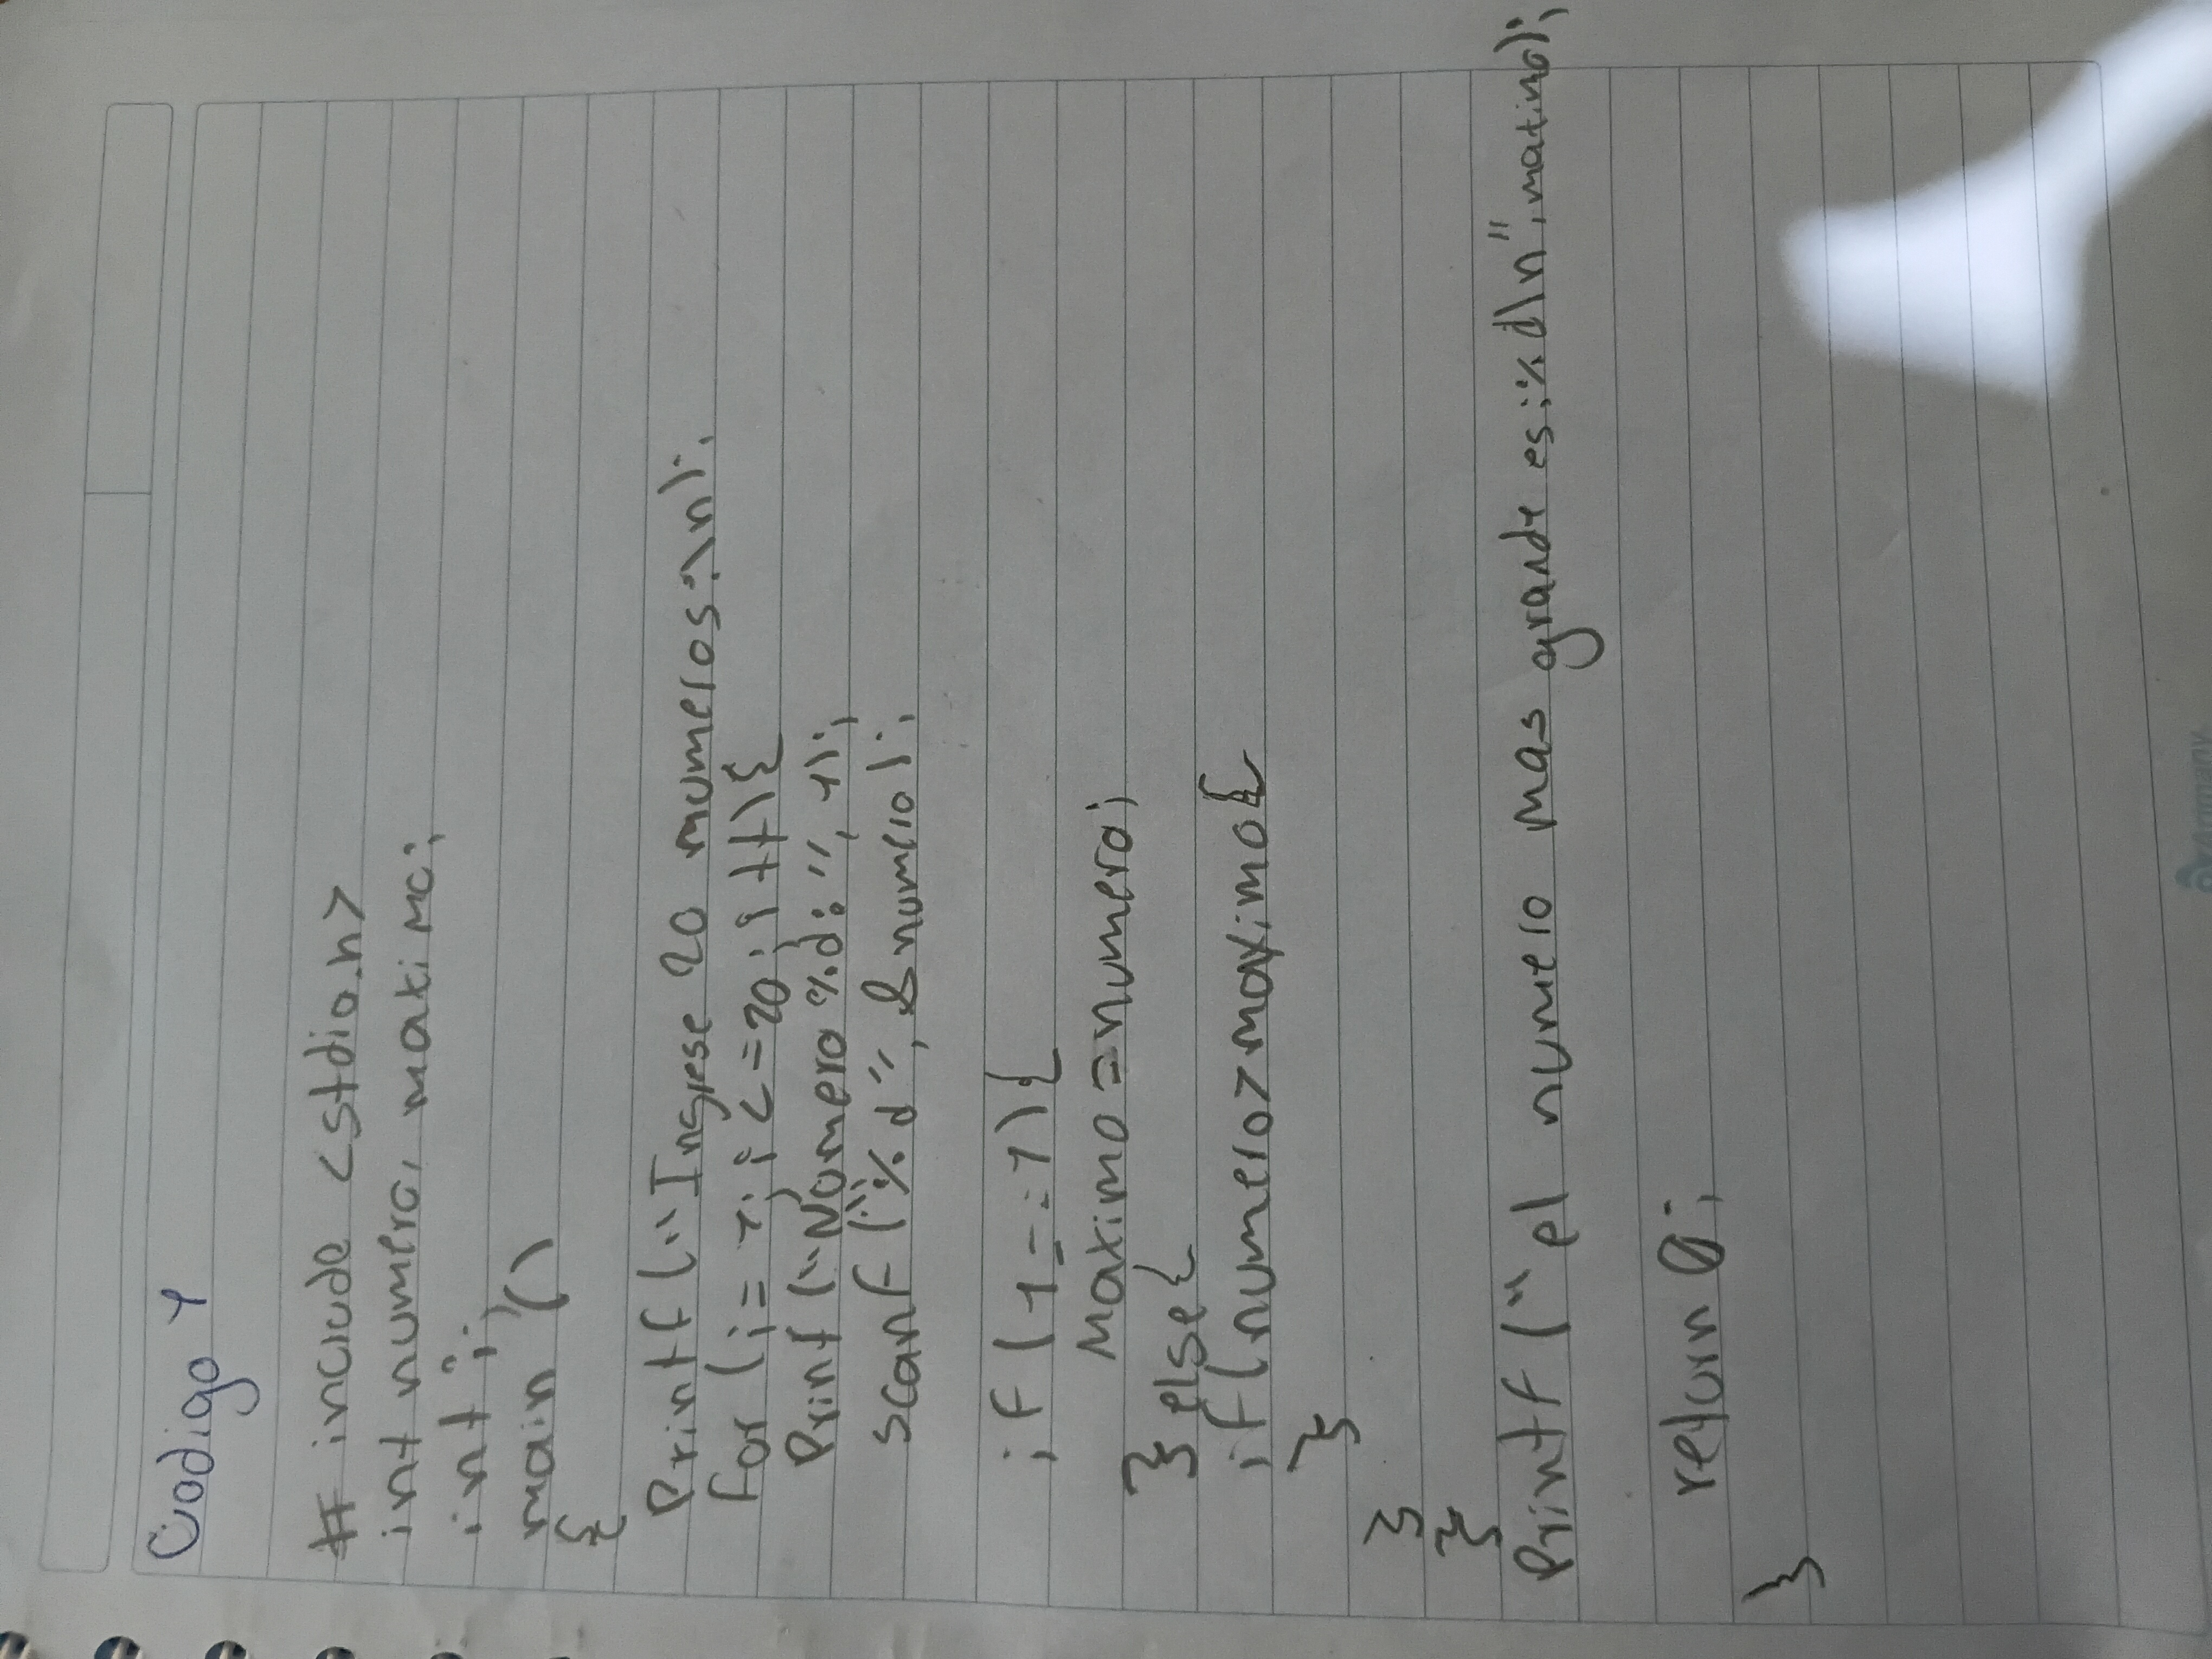 Codigo 1
# include <stdio.h>
int numero, maximo;
int i;
main ()
{
Printf ("Ingrese 20 numeros:\n);
for (i = 1; i <=20; i ++){
Printf ("Numero %d: ", 1);
scanf ("%d", &numero);
if (1 == 1){
Maximo = numero;
} else{
if (numero>maximo{
}
}
}
Printf (" el numero mas grande es: %d\n", maximo);
return 0;
}